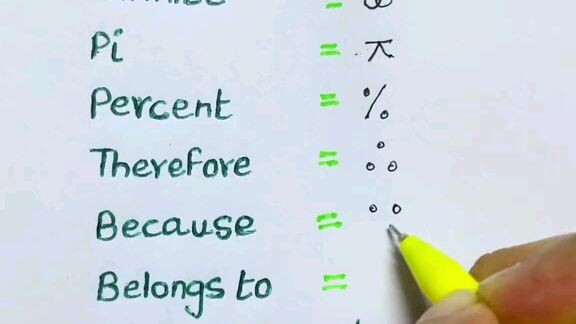 Pi = π
Percent = %
Therefore = ∴
Because =
Belongs to =